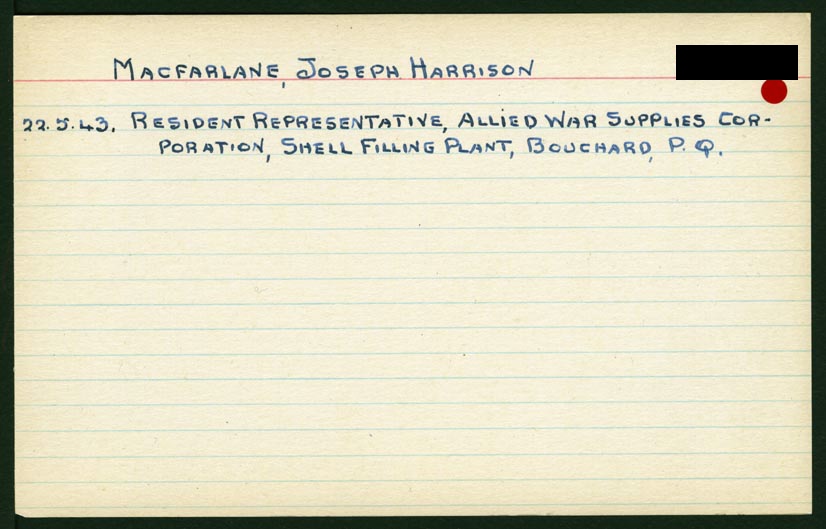 MACFARLANE, JOSEPH HARRISON
22.5.43. RESIDENT REPRESENTATIVE, ALLIED WAR SUPPLIES COR-
PORATION, SHELL FILLING PLANT, BOUCHARD, P. Q.